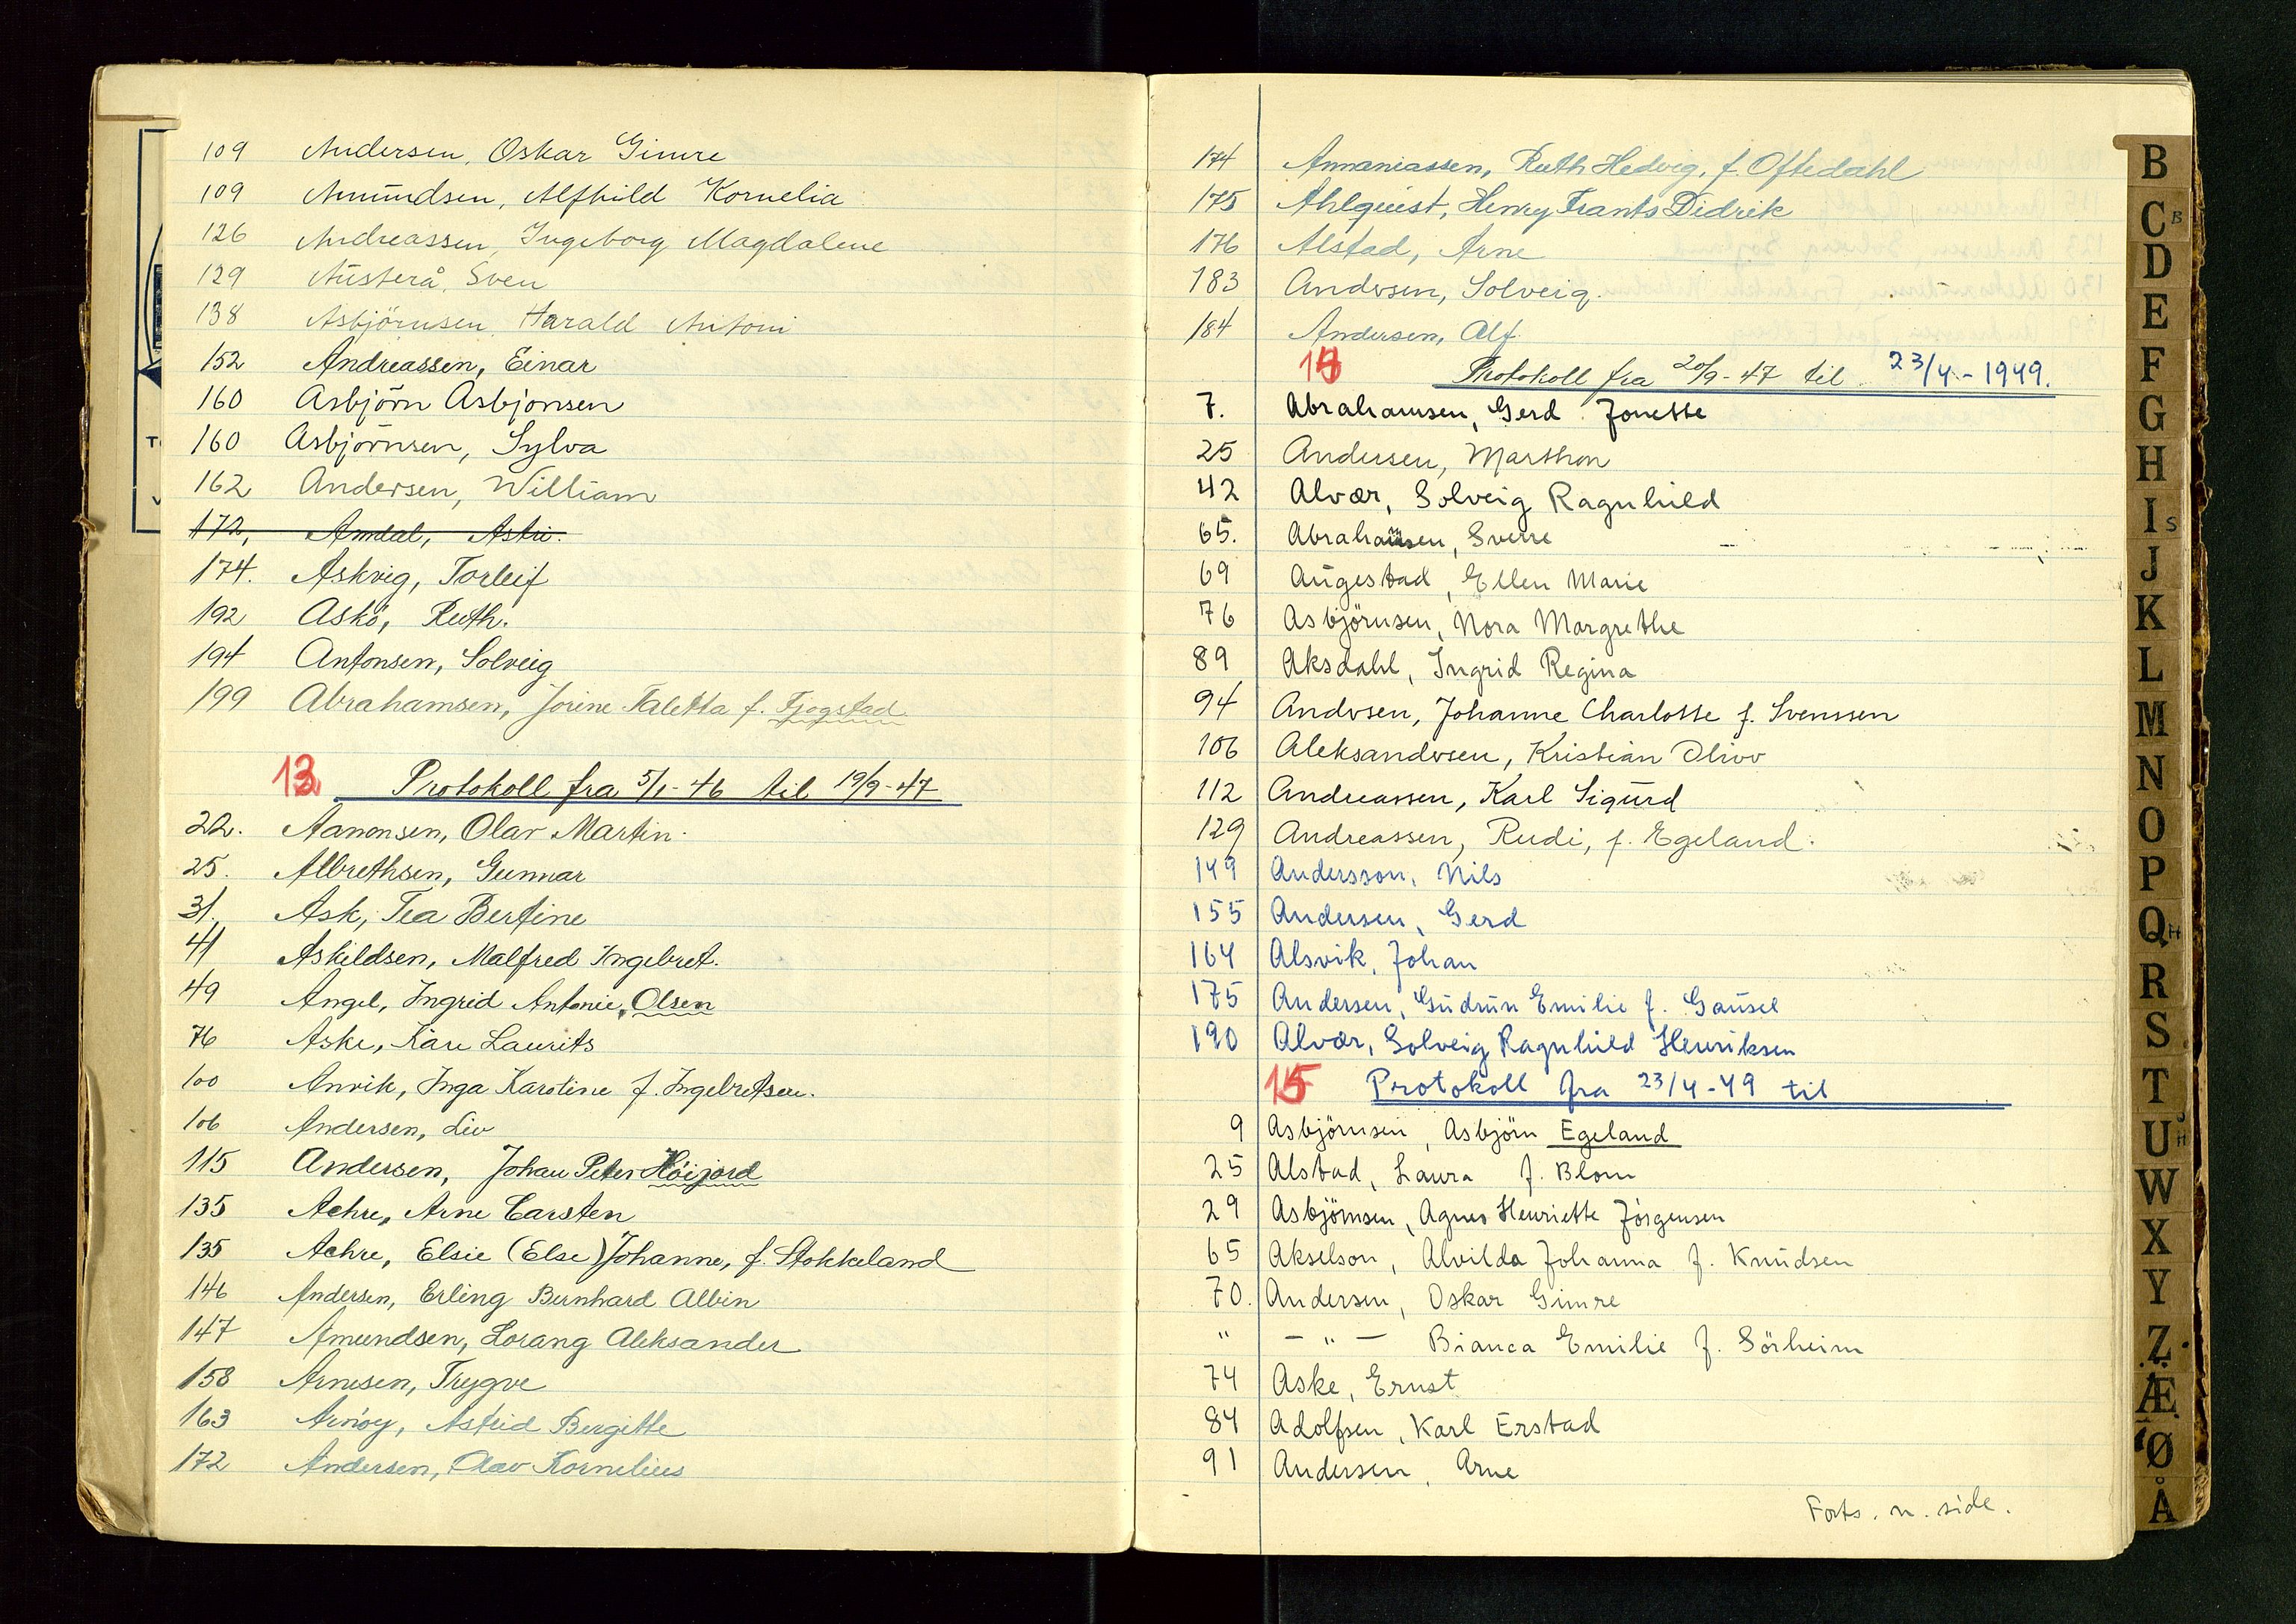 109 Andersen, Oskar Gimre
109 Amundsen, Alfhild Kornelia
126 Andreassen, Ingeborg Magdalene
129 Austerå, Sven
138 Asbjörnsen, Harald Antoni
152 Andreassen, Einar
160 Asbjörn Asbjonsen
160 Asbjörnsen, Sylva
162 Andersen, William
172, Amdal, Astri.
174. Askvig, Torleif
192 Askö, Ruth.
194 Antonsen, Solveig
199 Abrahamsen, Jorine Taletta f. Fjogstad
13 Protokoll fra 5/1-46 til 19/9-47
22. Aamonsen, Olav Martin.
25. Albrethsen, Gunnar
31. Ask, Tea Bertine
41 Askildsen, Malfred Ingebret.
49 Angel, Ingrid Antonie, Olsen
76 Aske, Kåre Laurits
100 Anvik, Inga Karoline f. Ingebretsen.
106 Andersen, Liv
115 Andersen, Johan Peter Höijord
135 Achre, Arne Carsten
135 Achre, Elsie (Else) Johanne, f. Stokkeland
146 Andersen, Erling Bernhard Albin
147 Amundsen, Lorang Aleksander
158 Arnesen, Trygve
163 Arnöy, Astrid Bergitte
172 Andersen, Olav Kornelius
174 Annaniassen, Ruth Hedvig, f. Oftedahl
175 Ahlquist, Henry Frants Didrik
176 Alstad, Arne
183 Andersen, Solveig.
184 Andersen, Alf.
14 Protokoll fra 20/9-47 til 23/4-1949.
7. Abrahamsen, Gerd Jonette
25 Andersen, Marthon
42 Alvær, Solveig Ragnhild
65. Abrahamsen, Sverre
69 Augestad, Ellen Marie
76 Asbjörnsen, Nora Margrethe
89 Aksdahl, Ingrid Regina
94 Andersen, Johanne Charlotte f. Svenssen
106 Aleksandersen, Kristian Oliver
112 Andreassen, Karl Sigurd
129 Andreassen, Rudi, f. Egeland.
149 Andersson, Nils
155 Andersen, Gerd
164 Alsvik, Johan
175 Andersen, Gudrun Emilie f. Gausel
190 Alvær, Solveig Ragnhild Henriksen
15 Protokoll fra 23/4-49 til
9 Asbjörnsen, Asbjörn Egeland
25 Alstad, Laura f. Blom
29 Asbjörnsen, Agnes Henriette Jörgensen
65 Akselson, Alvilda Johanna f. Knudsen
70. Andersen, Oskar Gimre
" — " — Bianca Emilie f. Sörheim
74 Aske, Ernst
84 Adolfsen, Karl Erstad
91 Andersen, Arne
Forts. n. side.
B
C B
D
E
F
G
H
I S
J
K
L
M
N
O
P
Q H
R
S
T
U J H
W
X
Y
Z
Æ
Ø
Å